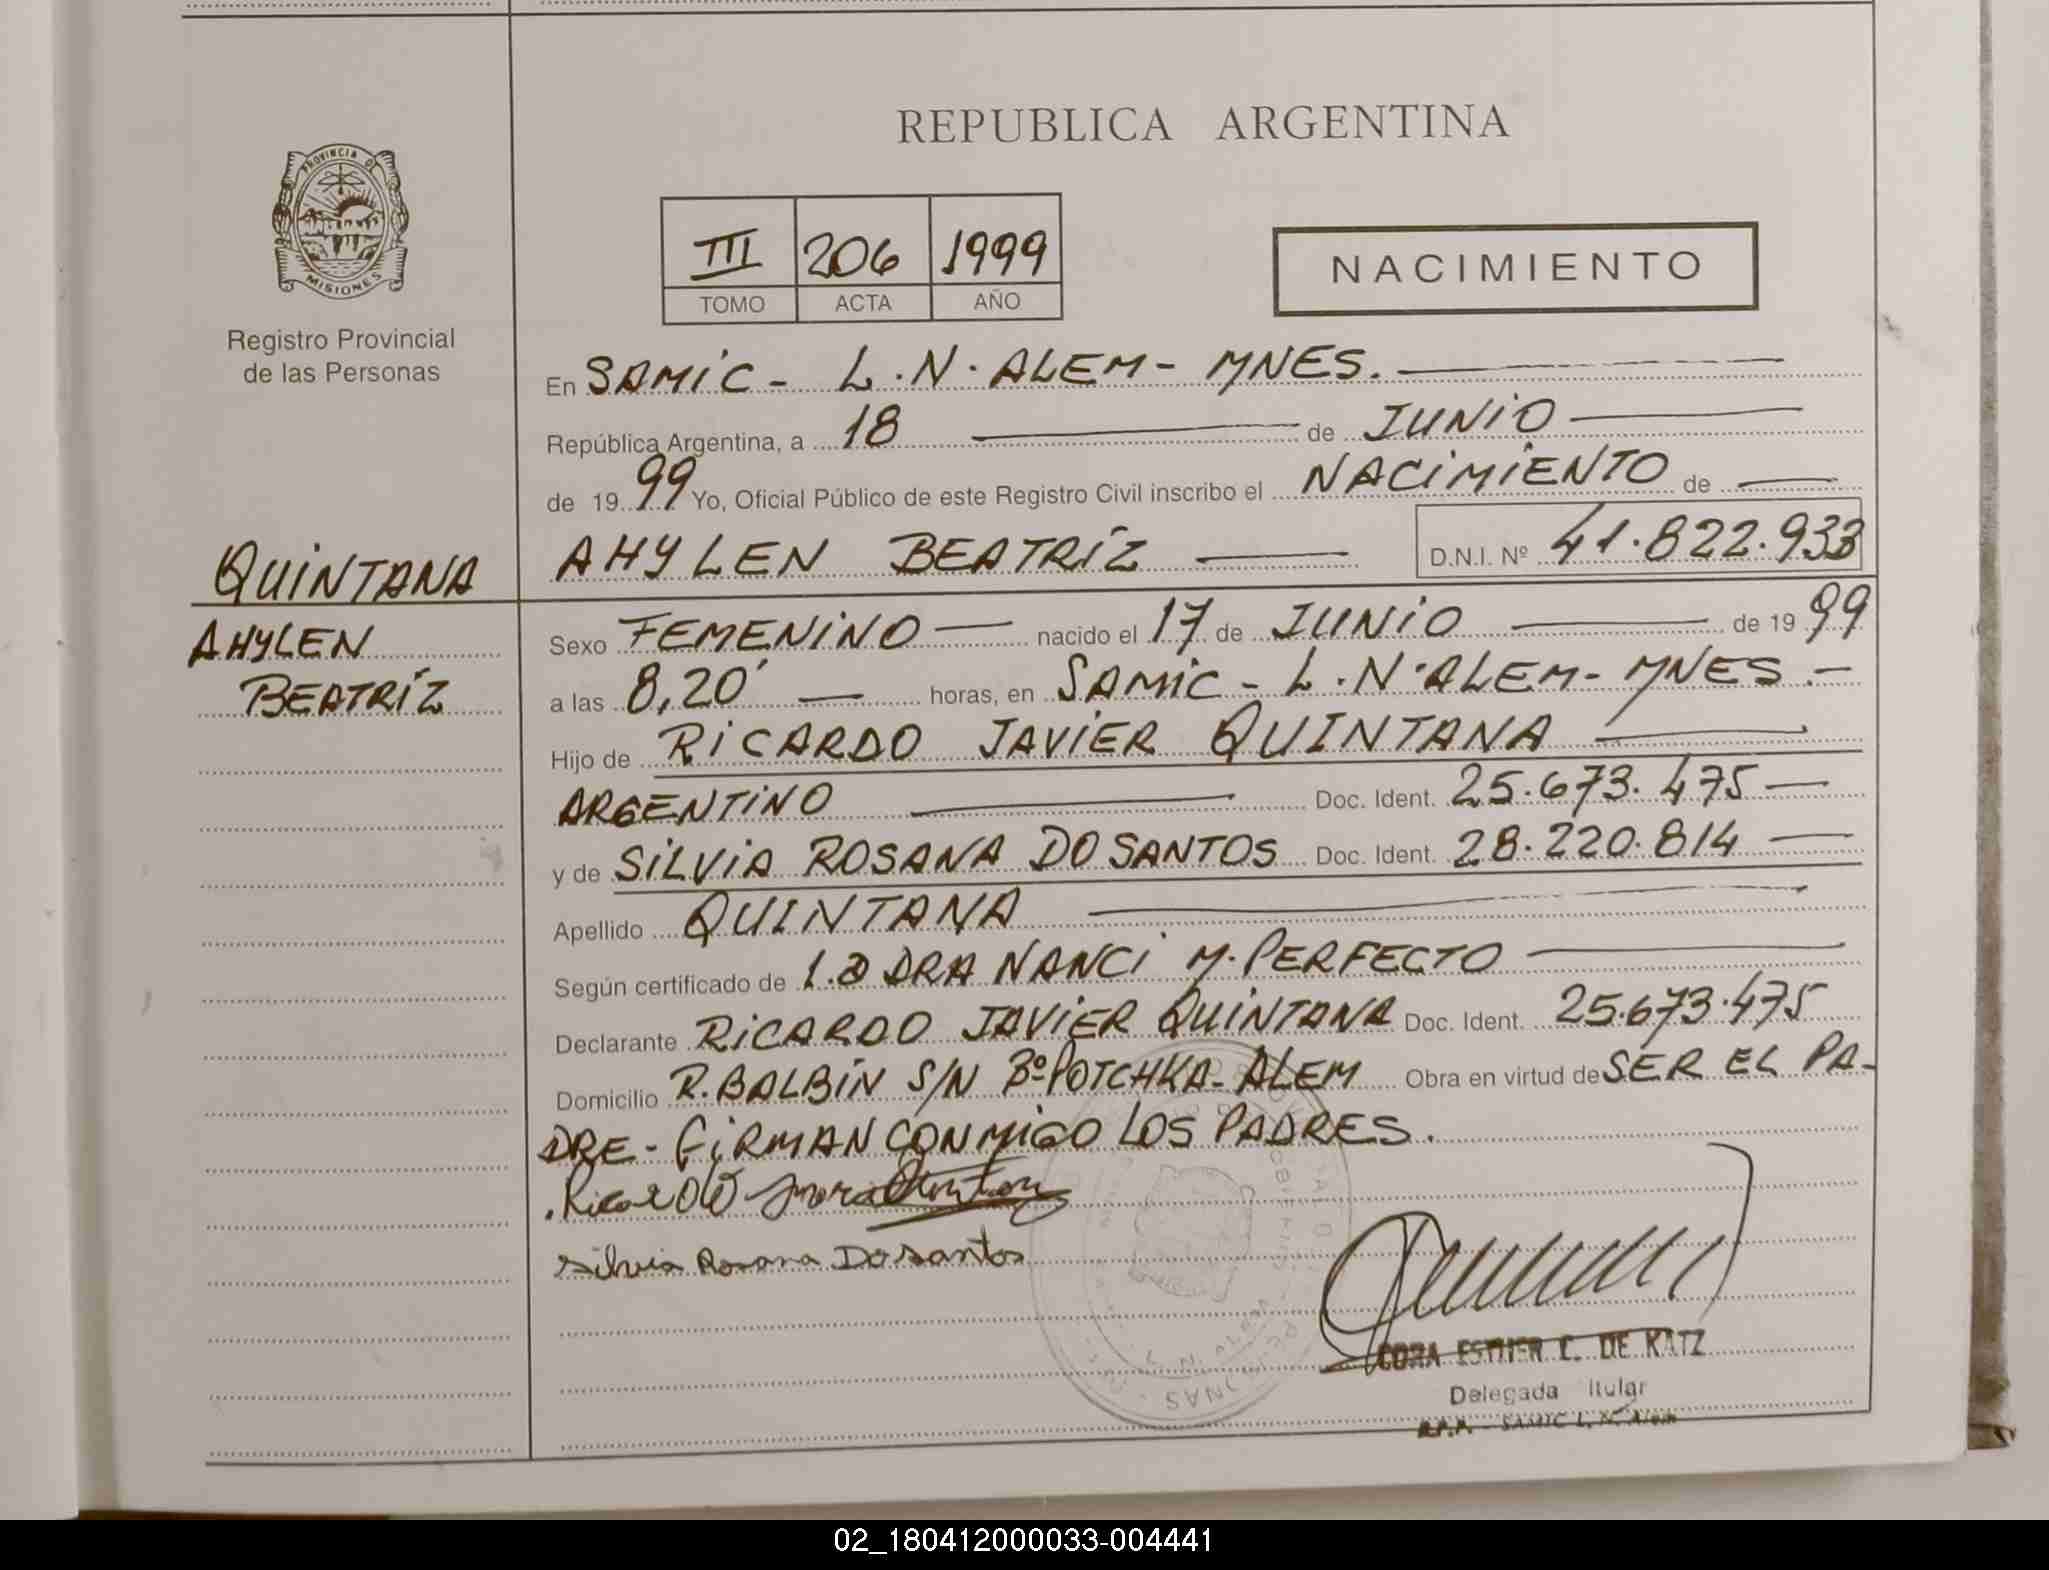 PROVINCIA DE
MISIONES
Registro Provincial
de las Personas
REPUBLICA ARGENTINA
III 206 1999
TOMO ACTA AÑO
NACIMIENTO
En SAMIC - L.N. ALEM - MNES.
República Argentina, a 18 de JUNIO
de 19 99 Yo, Oficial Público de este Registro Civil inscribo el NACIMIENTO de
QUINTANA
AHYLEN
BEATRÍZ
AHYLEN BEATRÍZ D.N.I. Nº 41.822.933
Sexo FEMENINO nacido el 17 de JUNIO de 19 99
a las 8,20' horas, en SAMIC - L.N. ALEM - MNES.-
Hijo de RICARDO JAVIER QUINTANA
ARGENTINO Doc. Ident. 25.673.475
y de SILVIA ROSANA DO SANTOS Doc. Ident. 28.220.814
Apellido QUINTANA
Según certificado de DRA NANCI M. PERFECTO
Declarante RICARDO JAVIER QUINTANA Doc. Ident. 25.673.475
Domicilio R. BALBÍN S/N Bº POTCHKA - ALEM Obra en virtud de SER EL PA-
DRE - FIRMAN CONMIGO LOS PADRES.
Silvia Rosana Dosantos
CORA ESTHER C. DE KATZ
Delegada itular
R.P.P. SAMIC L.N. Alem
02_180412000033-004441